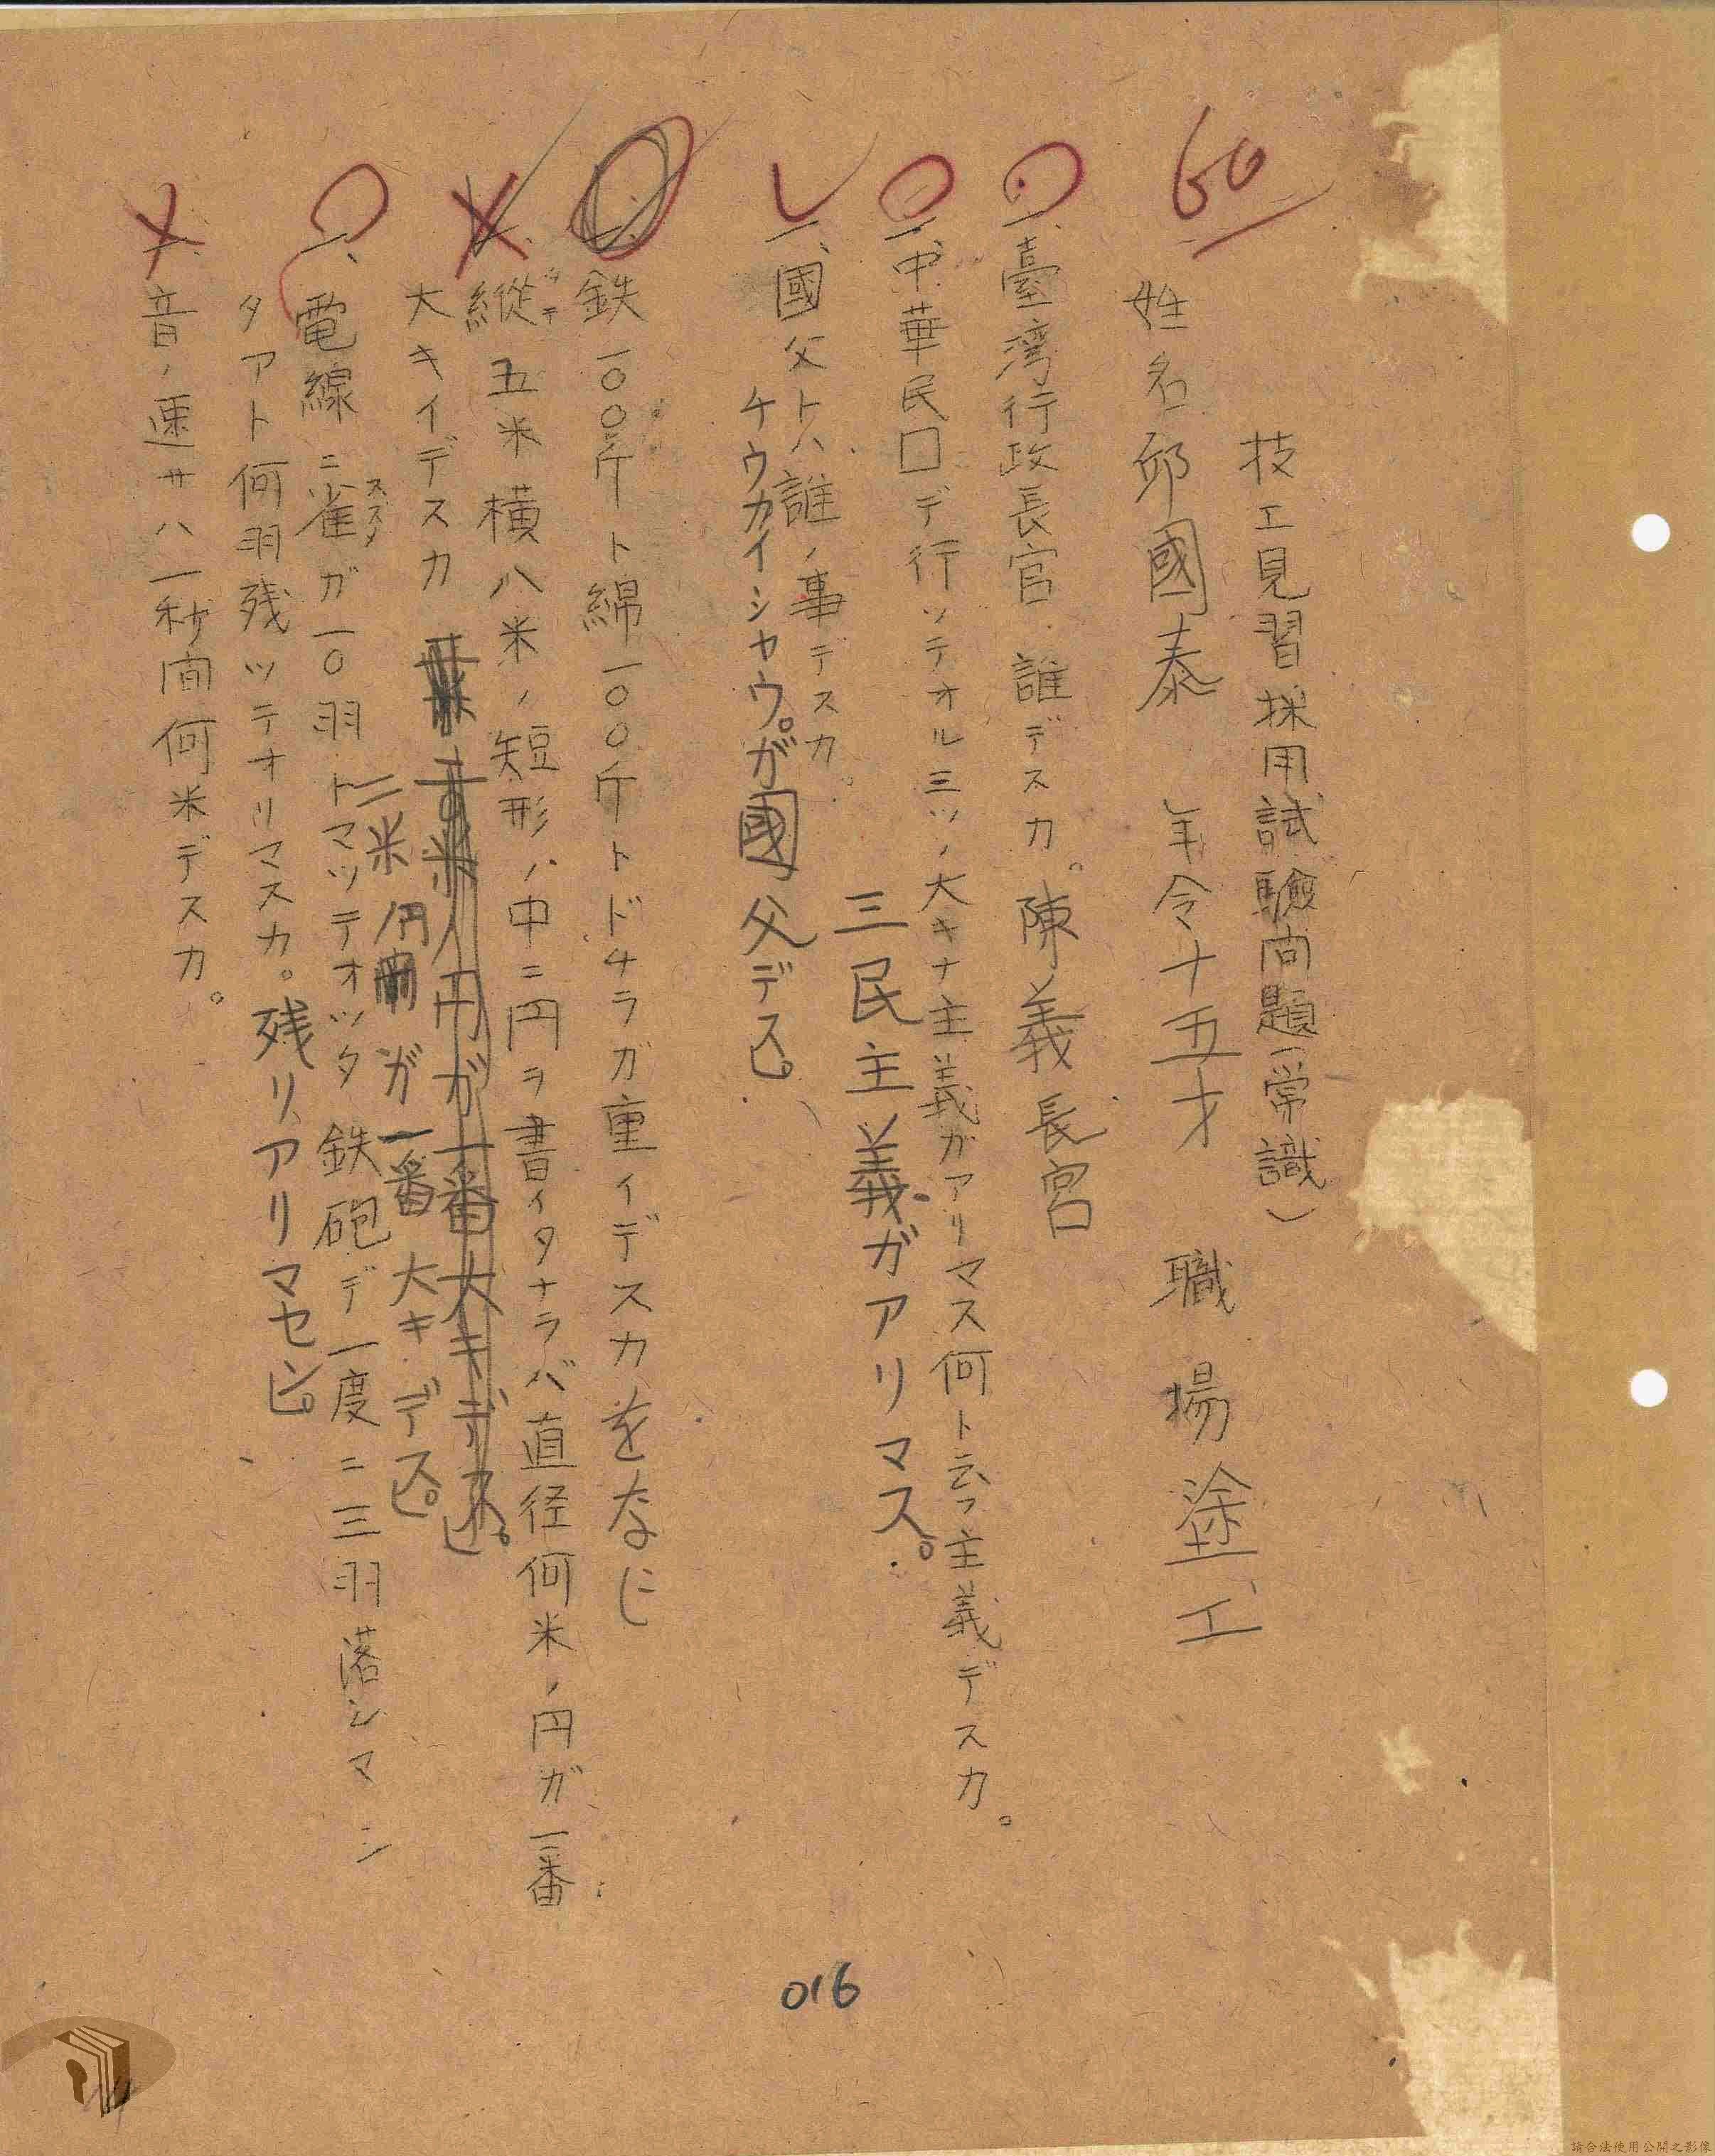 技工見習採用試驗問題(常識)
60
姓名 邱國泰 年令十五才 職場塗工
一、臺湾行政長官 誰デスカ。陳義長宮
一、中華民口デ行ツテオル三ツノ大キナ主義ガアリマス何ト云フ主義デスカ。
三民主義ガアリマス。
一、國父トハ誰ノ事デスカ。
チウカイシヤウ。が國父デス。
一、鉄一〇〇斤ト綿一〇〇斤トドチラガ重イデスカをなじ
一、縦五米横八米ノ短形ノ中ニ円ヲ書イタナラバ直径何米ノ円ガ一番
タテ
大キイデスカ
米ノ円ガ一番大キデス。
二米ノ円ガ一番大キデス。
一、電線ニ雀ガ一〇羽トマツテオツタ鉄砲デ一度ニ三羽落シマシ
スズメ
タアト何羽残ツテオリマスカ。残リアリマセン。
一、音ノ速サハ一秒間何米デスカ。
016
請合法使用公開之影像